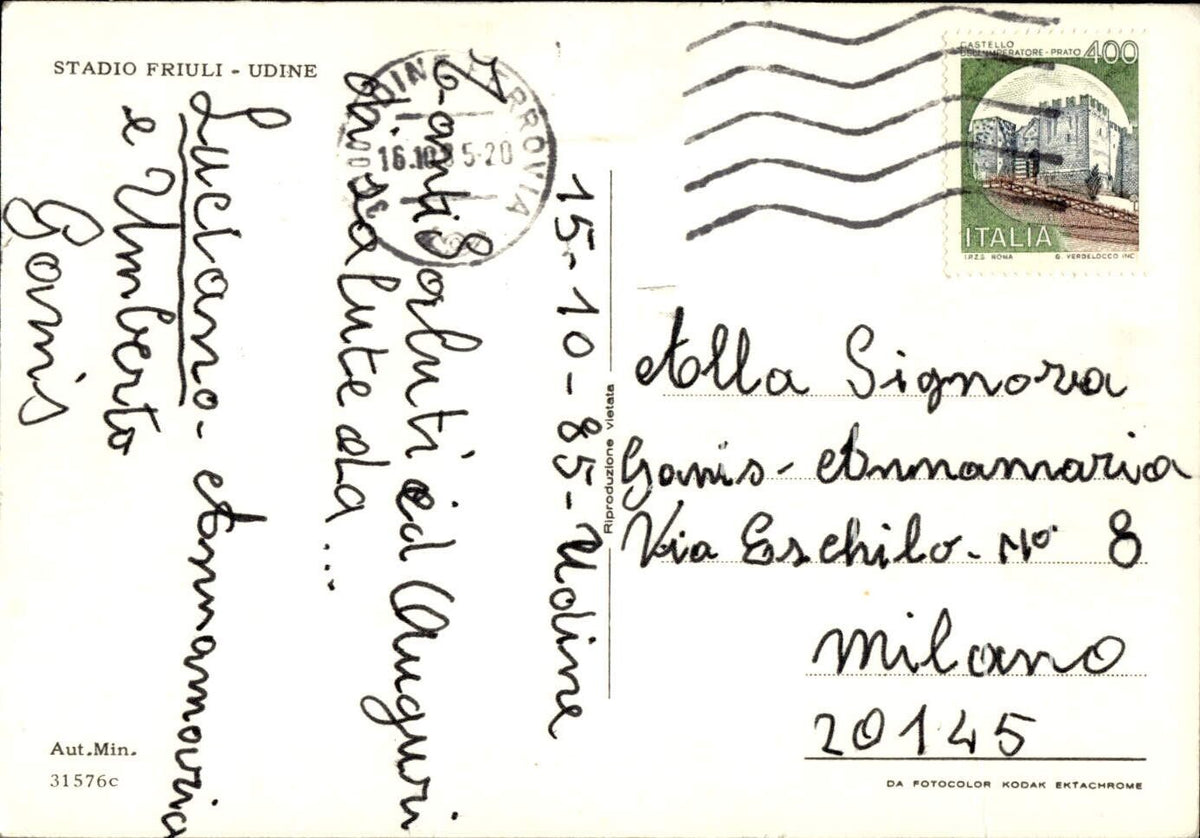 STADIO FRIULI - UDINE
15-10-85-Udine
Tanti Saluti ed Auguri
di salute da ...
Luciano - Annamaria
e Umberto
Ganis
Aut.Min.
31576c
Riproduzione vietata
UDINE FERROVIA
16.10.85-20
CASTELLO
DELL'IMPERATORE - PRATO 400
ITALIA
I.P.Z.S. ROMA G. VERDELOCCO INC.
Alla Signora
Ganis - Annamaria
Via Eschilo - N° 8
Milano
20145
DA FOTOCOLOR KODAK EKTACHROME